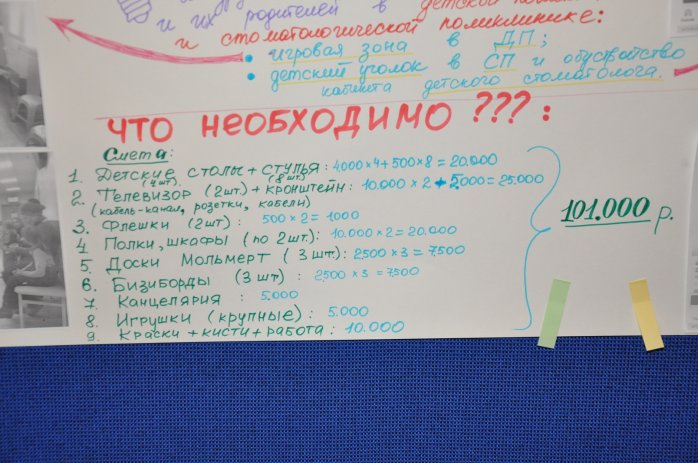 и их родителей в детской
и стоматологической поликлинике:
• игровая зона в ДП;
• детский уголок в СП и обустройство
кабинета детского стоматолога.
ЧТО НЕОБХОДИМО ???:
Смета:
1. Детские столы + стулья: 4000×4+500×8=20.000
(4шт) (8шт.)
2. Телевизор (2шт.) + кронштейн: 10.000×2+5000=25.000
(кабель-канал, розетки, кабели)
3. Флешки (2шт): 500×2=1000
4 Полки, шкафы (по 2шт.): 10.000×2=20.000
5. Доски Мольмерт (3 шт.): 2500×3=7.500
6. Бизиборды (3 шт): 2500×3=7500
7. Канцелярия: 5.000
8. Игрушки (крупные): 5.000
9. Краски+кисти+работа: 10.000
101.000 р.